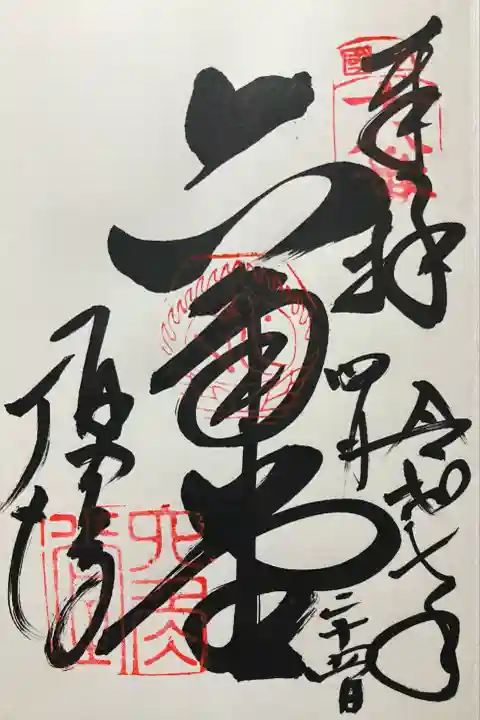 奉拝
令和七年
四月
二十四日
六角堂
頂法寺